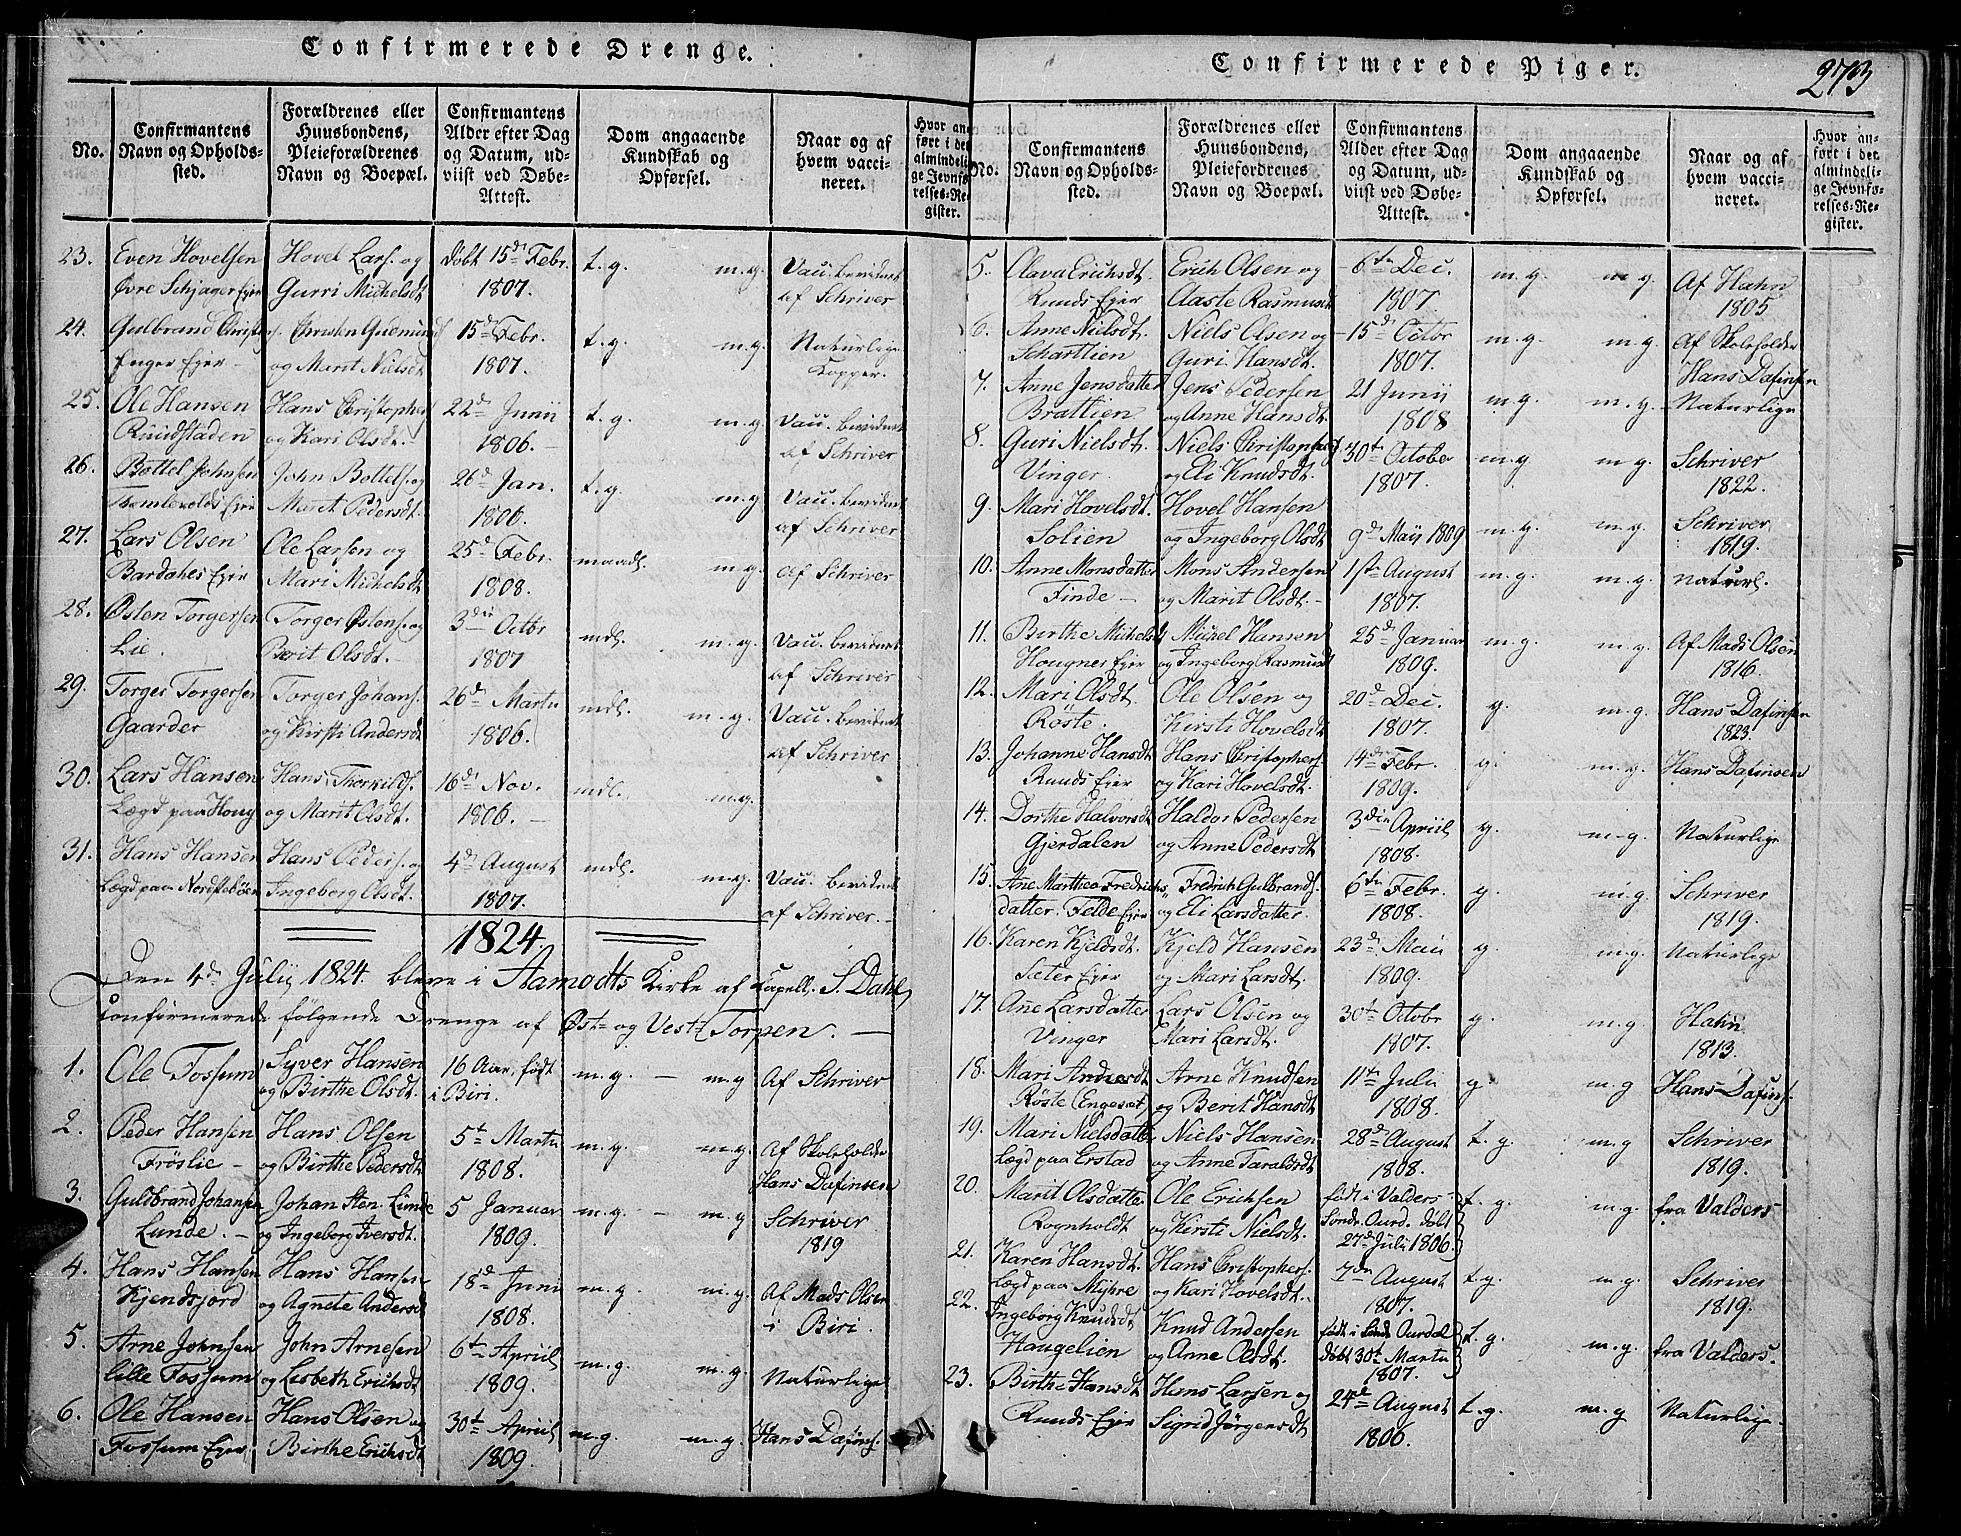 Confirmerede Drenge.
No.
Confirmantens
Navn og Opholds-
sted.
Forældrenes eller
Huusbondens,
Pleieforældrenes
Navn og Boepæl.
Confirmantens
Alder efter Dag
og Datum, ud-
viist ved Døbe-
Attest.
Dom angaaende
Kundskab og
Opførsel.
Naar og af
hvem vacci-
neret.
Hvor an-
ført i det
almindeli-
ge Jevnfø-
relses-Re-
gister.
23. Even Hovelsen Hovel Lars. og døbt 15de Febr. t. g. m. g. Vau. bevidnet
Øvre Schjager Ejer Gurri Michelsdt. 1807. af Schriver
24. Gulbrand Christens. Christen Gudmunds. 15de Febr. t. g. m. g. Naturlige
Enger Ejer - og Marit Nielsdt. 1807. Kopper.
25. Ole Hansen Hans Christophers. 22de Junii t. g. m. g. Vau. bevidnet
Rundstaden og Kari Olsdt. 1806. - af Schriver
26. Bottel Johnsen John Bottels. og 26de Jan. t. g. m. g. Vau. bevidnet
Ejer Maret Pedersdt. 1806. af Schriver
27. Lars Olsen Ole Larsen og 25de Febr. maadl. m. g. af Schriver
Bardahes Ejer Mari Michelsdt. 1808.
28. Østen Torgersen Torger Østens. og 3die Octbr mdl. m. g. Vau. bevidnet
Lie. Berit Olsdt. - 1807 af Schriver
29. Torger Torgersen Torger Johans. 26de Martii mdl. m. g. Vau. bevidnet
Gaarder og Kirsti Andersdt. 1806. af Schriver
30. Lars Hansen Hans Thorkilds. 16de Nov. mdl. m. g.
Lægd paa Houg og Marit Olsdt. 1806. -
31. Hans Hansen Hans Peders. og 4de August mdl. m. g. Vau. bevidnet
Lægd paa Nordstebøen Ingeborg Olsdt. 1807. af Schriver. -
1824.
Den 4de Julij 1824 bleve i Aamodts Kirke af Capell. S. Dahl
Confirmerede følgende Drenge af Øst- og Vest- Torpen. -
1. Ole Fossum Syver Hansen 16 Aar, født m. g. - m. g Af Schriver
og Birthe Olsdt. i Biri.
2. Peder Hansen Hans Olsen 5te Martii m. g. m. g. Af Skoleholder
Fröslie - og Birthe Pedersdt. 1808. Hans Dafinsen
3. Guldbrand Johansen Johan Sten. Lunde 5 Januar m. g. - m. g Schriver
Lunde. - og Ingeborg Iversdt. 1809. 1819
4. Hans Hansen Hans Hansen 18de Juni m. g. m. g. Af Mads Olsen
Kjendsjord og Agnete Andersdt. 1808. i Biri.
5. Arne Johnsen John Arnesen 6te Apriil m. g. m. g. Naturlige
lille Fossum og Lisbeth Erichsdt. 1809.
6. Ole Hansen Hans Olsen og 30te Apriil m. g. m. g. Hans Dafins.
Fossum Ejer Birthe Erichsdt. 1809.
Confirmerede Piger.
273
No.
Confirmantens
Navn og Opholds-
sted.
Forældrenes eller
Huusbondens,
Pleiefordrenes
Navn og Boepæl.
Confirmantens
Alder efter Dag
og Datum, ud-
viist ved Døbe-
Attest.
Dom angaaende
Kundskab og
Opførsel.
Naar og af
hvem vacci-
neret.
Hvor an-
ført i det
almindeli-
ge Jevnfø-
relses-Re-
gister.
5. Olava Erichsdt. Erich Olsen og 6te Dec. m. g. m. g. Af Hahn
Ruuds Ejer Aaste Rasmusdt. 1807 1805
6. Anne Nielsdt. Niels Olsen og 15de Octbr m. g. m. g. Af Skoleholder
Scharttien Guri Hansdt. 1807. Hans Dafinsen
7. Anne Jensdatter Jens Pedersen 21 Junii m. g. m. g. Naturlige
Brattien og Anne Hansdt. 1808
8. Guri Nielsdt. Niels Christophers. 30te October m. g m. g. Schriver
Vinger og Eli Knudsdt. 1807. 1822.
9. Mari Hovelsdt. Hovel Hansen 9de Maij 1809 m. g. m. g. Schriver
Solien og Ingeborg Olsdt. 1819.
10. Anne Monsdatter Mons Andersen 1ste August m. g. m. g. naturl.
Finde - og Marit Olsdt. - 1807.
11. Birthe Michelsdt. Michel Hansen 25de Januar m. g. m. g. Af Mads Olsen
Hougnes Ejer og Ingeborg Rasmusdt. 1809. 1816.
12. Mari Olsdt. Ole Olsen og 20de Dec. g. m. g. Hans Dafinsen
Röste. Kirsti Hovelsdt. 1807. 1823.
13. Johanne Hansdt. Hans Christophers. 14de Febr. g. m. g. Hans Dafinsen
Ruuds Ejer og Kari Hovelsdt. 1809.
14. Dorthe Halvorsdt. Haldor Pedersen 3die Apriil g. m. g. Naturlige
Gjerdalen og Anne Pedersdt. 1808.
15. Ane Marthea Fredrichs- Fredrich Gulbrands. 6te Febr. g. m. g Schriver
datter. Felde Ejer og Eli Larsdatter. 1808. 1819.
16. Karen Kjeldsdt. Kjeld Hansen 23de Maii g. m. g. Naturlige
Sæter Ejer og Mari Larsdt. 1809.
17. Ane Larsdatter Lars Olsen og 30te Octobr g. m. g Hahn
Vinger Mari Larsdt. 1807. 1813.
18. Mari Arnesdt. Arne Knudsen 11te Julii g. m. g Hans Dafins.
Röste (Engesæt) og Berit Hansdt. 1808.
19. Mari Nielsdatter Niels Hansen 28de August t. g. m. g Schriver
Lægd paa Erstad og Anne Taraldsdt. 1808. 1819.
20. Marit Olsdatter Ole Erichsen født i Valders t. g. m. g. fra Valders
Rognholdt og Kirsti Nielsdt. Sondr. Ourd. døbt
27de Julii 1806.
21. Karen Hansdt. Hans Christophers. 7de August t. g. m. g. Schriver
Lægd paa Myhre og Kari Hovelsdt. 1807. 1819.
22. Ingeborg Knudsdt. Knud Andersen født i Søndr Ourdal t. g. m. g. fra Valders.
Haugelien og Anne Olsdt. døbt 30te Martii
1807.
23. Birthe Hansdt. Hans Larsen og 24de August t. g. m. g Naturlige
Ruuds Ejer Sigrid Jørgensdt. 1806.